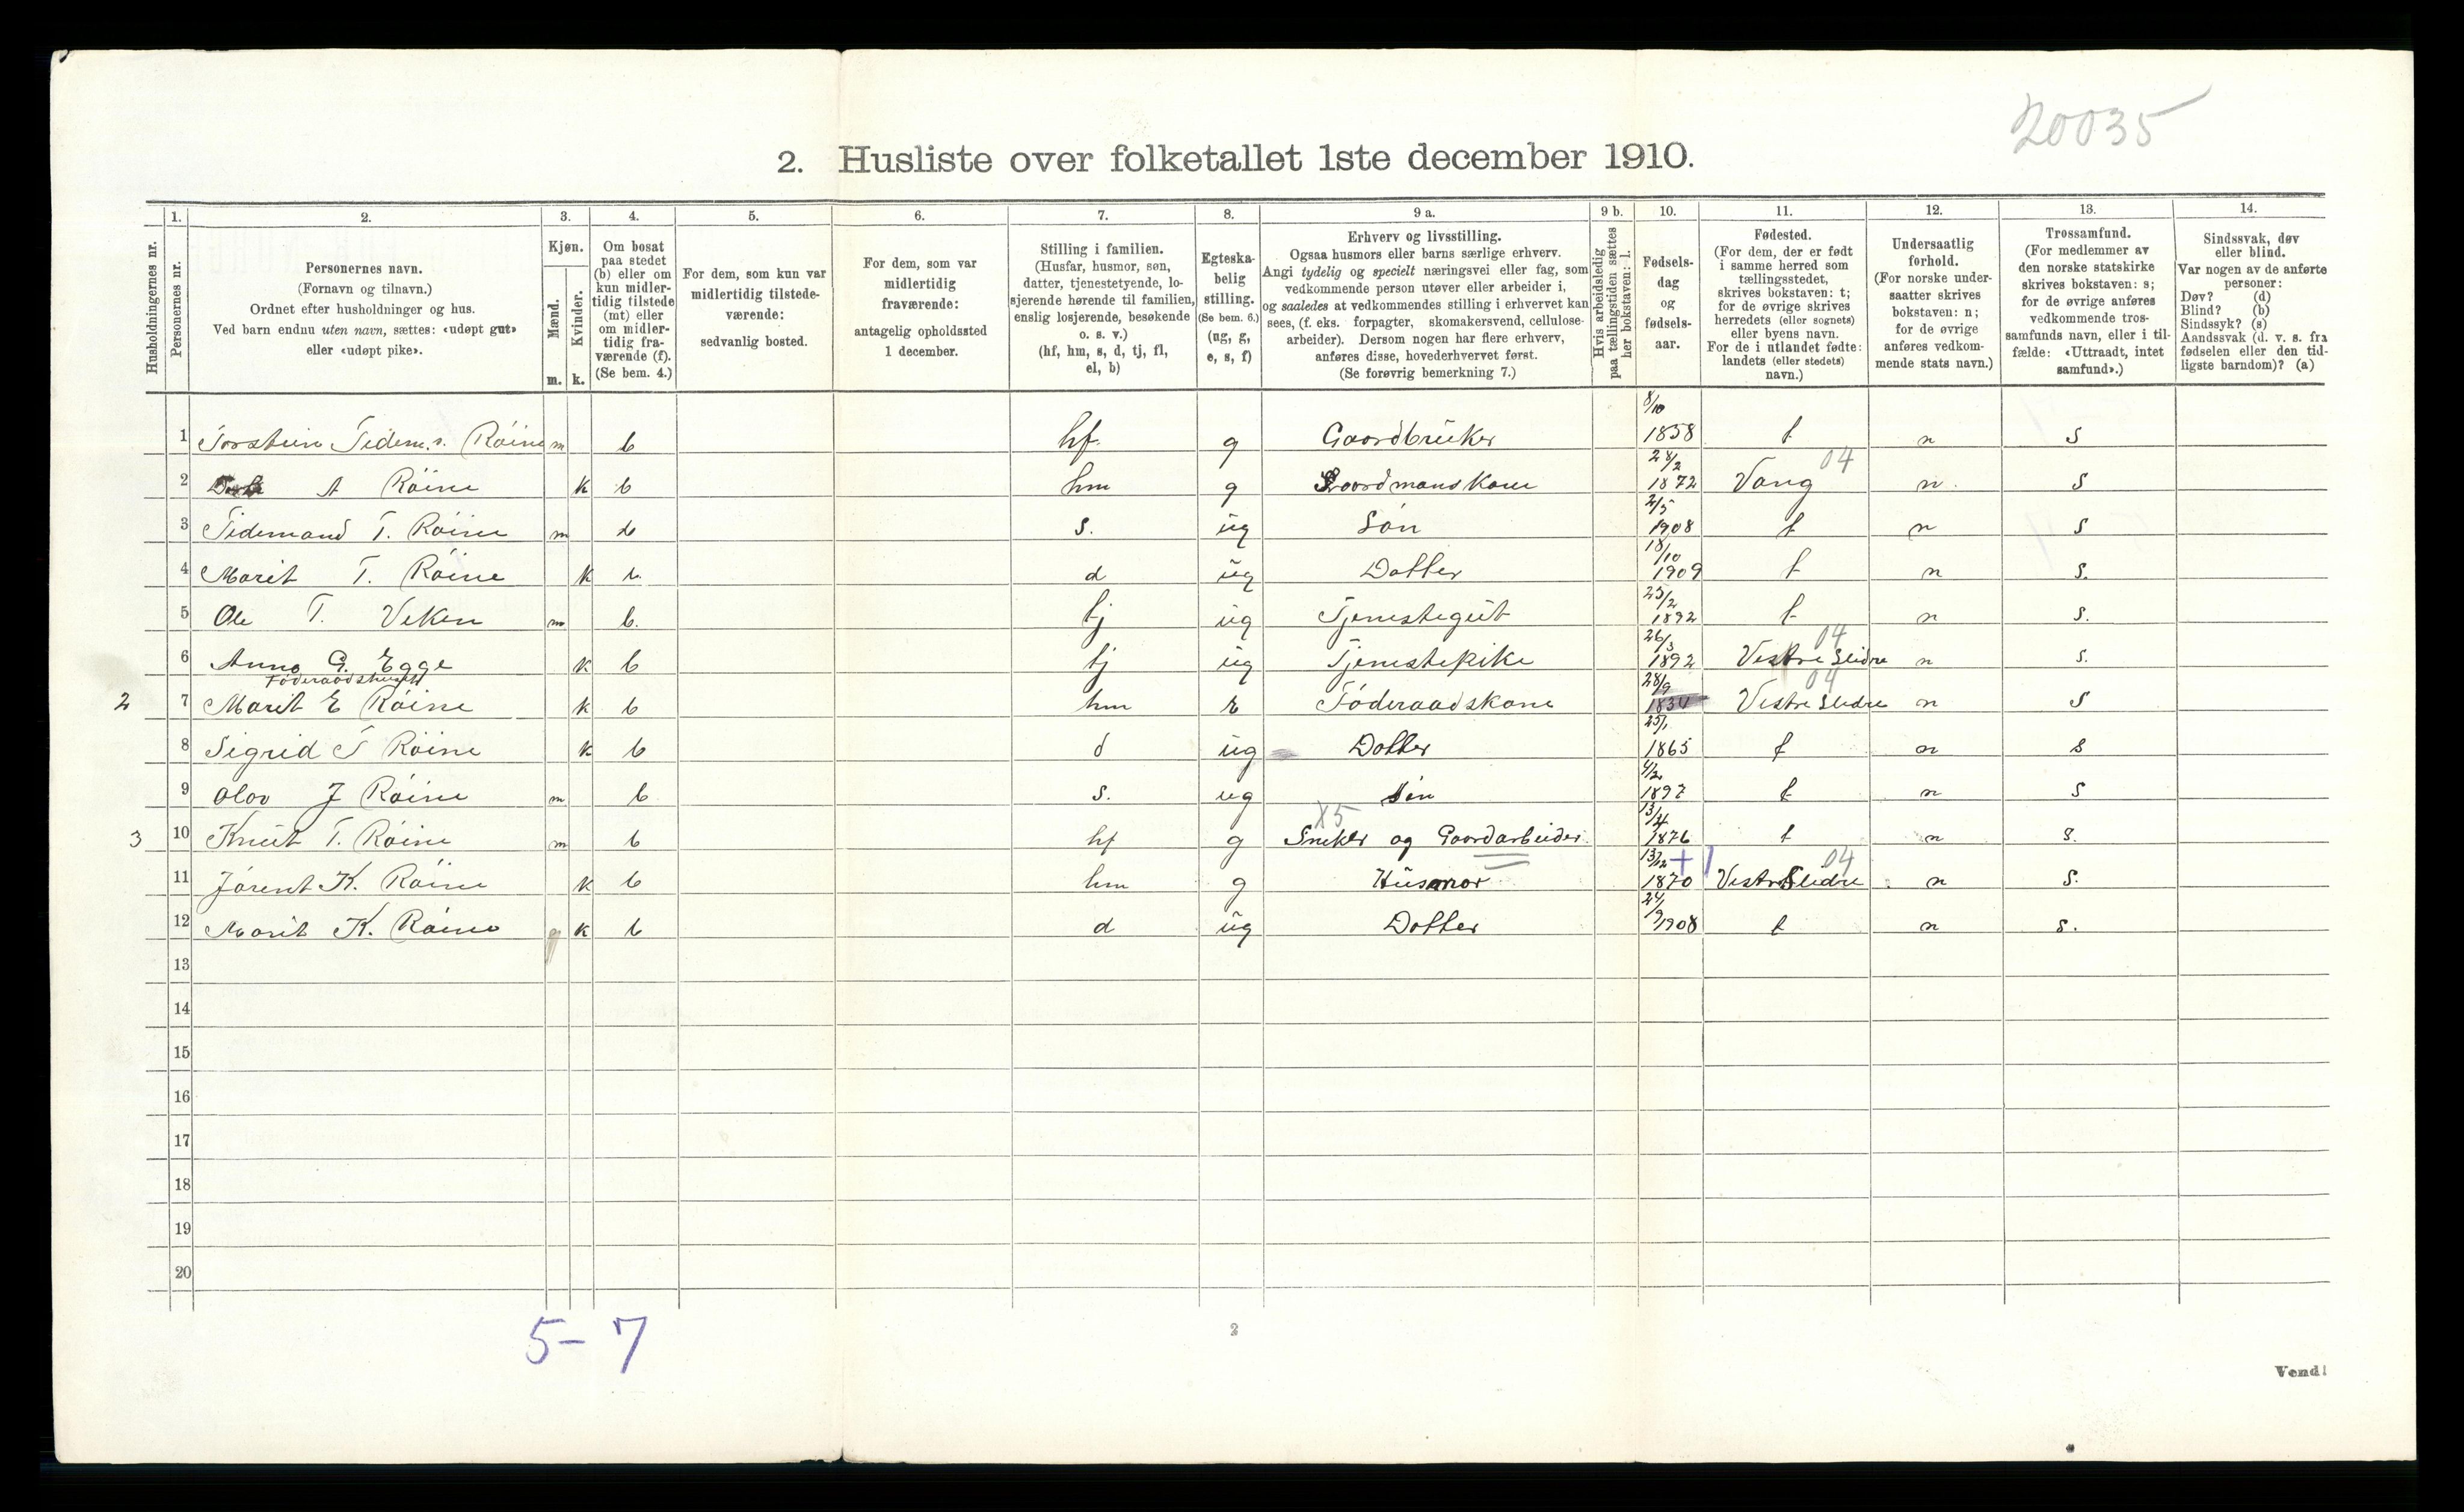 20035
2. Husliste over folketallet 1ste december 1910.
1. 2. 3. 4. 5. 6. 7. 8. 9 a. 9 b. 10. 11. 12. 13. 14.
Husholdningernes nr.
Personernes nr.
Personernes navn.
(Fornavn og tilnavn.)
Ordnet efter husholdninger og hus.
Ved barn endnu uten navn, sættes: «udøpt gut»
eller «udøpt pike».
Kjøn.
Mænd.
Kvinder.
m. k.
Om bosat
paa stedet
(b) eller om
kun midler-
tidig tilstede
(mt) eller
om midler-
tidig fra-
værende (f).
(Se bem. 4.)
For dem, som kun var
midlertidig tilstede-
værende:
sedvanlig bosted.
For dem, som var
midlertidig
fraværende:
antagelig opholdssted
1 december.
Stilling i familien.
(Husfar, husmor, søn,
datter, tjenestetyende, lo-
sjerende hørende til familien,
enslig losjerende, besøkende
o. s. v.)
(hf, hm, s, d, tj, fl,
el, b)
Egteska-
belig
stilling.
(Se bem. 6.)
(ug, g,
e, s, f)
Erhverv og livsstilling.
Ogsaa husmors eller barns særlige erhverv.
Angi tydelig og specielt næringsvei eller fag, som
vedkommende person utøver eller arbeider i,
og saaledes at vedkommendes stilling i erhvervet kan
sees, (f. eks. forpagter, skomakersvend, cellulose-
arbeider). Dersom nogen har flere erhverv,
anføres disse, hovederhvervet først.
(Se forøvrig bemerkning 7.)
Hvis arbeidsledig
paa tællingstiden sættes
her bokstaven: l.
Fødsels-
dag
og
fødsels-
aar.
Fødested.
(For dem, der er født
i samme herred som
tællingsstedet,
skrives bokstaven: t;
for de øvrige skrives
herredets (eller sognets)
eller byens navn.
For de i utlandet fødte:
landets (eller stedets)
navn.)
Undersaatlig
forhold.
(For norske under-
saatter skrives
bokstaven: n;
for de øvrige
anføres vedkom-
mende stats navn.)
Trossamfund.
(For medlemmer av
den norske statskirke
skrives bokstaven: s;
for de øvrige anføres
vedkommende tros-
samfunds navn, eller i til-
fælde: «Uttraadt, intet
samfund».)
Sindssvak, døv
eller blind.
Var nogen av de anførte
personer:
Døv? (d)
Blind? (b)
Sindssyk? (s)
Aandssvak (d. v. s. fra
fødselen eller den tid-
ligste barndom)? (a)
1 Torstein Tidem.s. Röine m b hf. g Gaardbruker 8/10 1858 t n s
2 A Röine k b hm g Gaardmanskone 28/2 1872 Vang 04 n. s
3 Tidemand T. Röine m b s. ug Sön 2/5 1908 t n s
4 Marit T. Röine k b. d ug Datter 18/10 1909 t n s.
5 Ole T. Veken m b. tj ug Tjenestegut 25/2 1892 t n s.
6 Anna G. Egge k b tj ug Tjenestepike 26/3 1892 Vestre Slidre 04 n s.
Föderaadshuset
2 7 Marit E Röine k b hm E Föderaadskone 28/9 1834 Vestre Slidre 04 n s
8 Sigrid T Röine k b d ug Datter 25/1 1865 t n s
9 Olav J Röine m b s. ug sön 4/2 1897 t n s
3 10 Knut T. Röine m b hf g X5 Sneker og Gaardarbeider 13/4 1876 t n s.
11 Jörent K. Röine k b hm g Husmor 13/12 1870 +1 Vestre Slidre 04 n s.
12 Marit K. Röine k b d ug Datter 24/9 1908 t n s.
13
14
15
16
17
18
19
20
5-7
2
Vend!